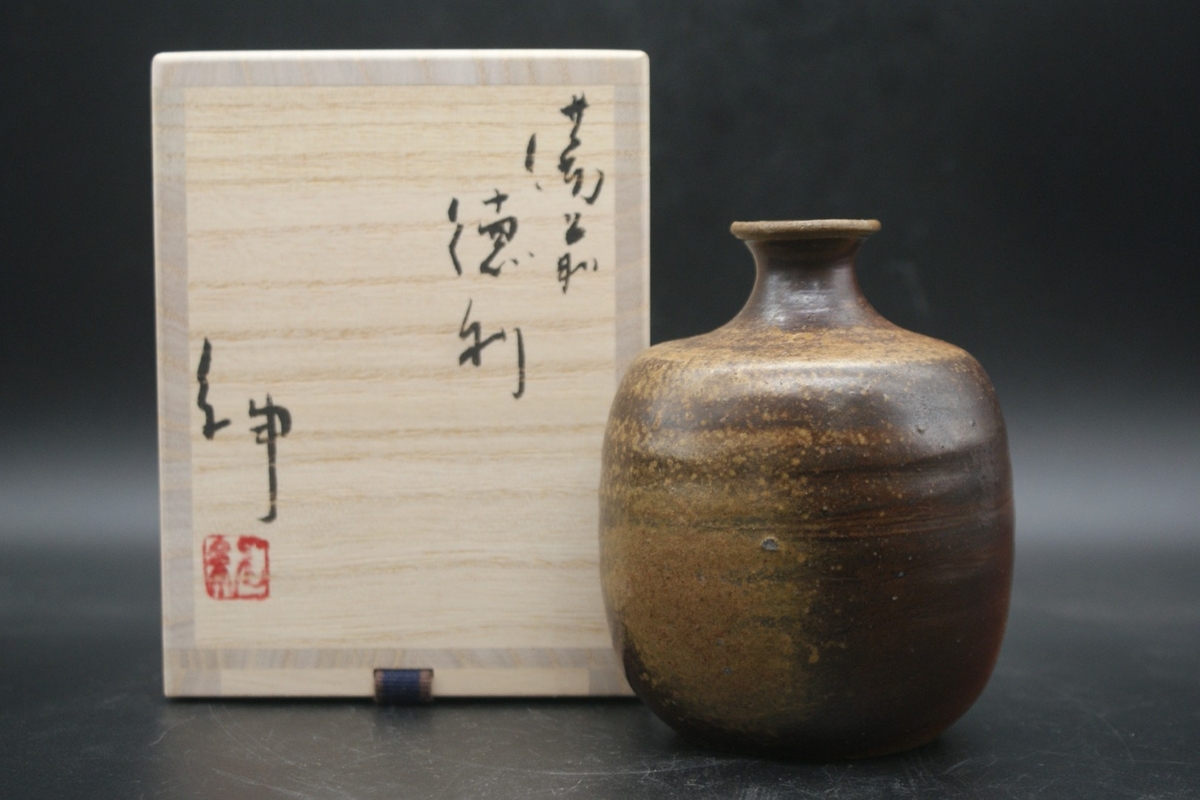 備前
徳利
紳